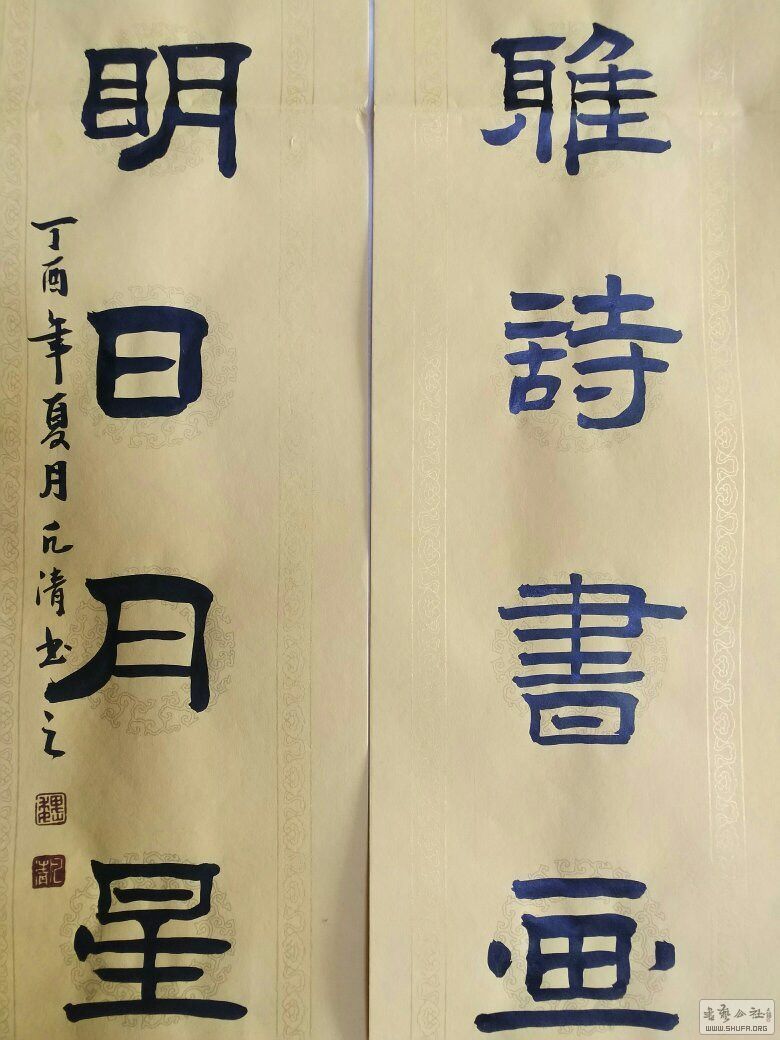 雅詩書画
明日月星
丁酉年夏月凡清书之
书艺公社
WWW.SHUFA.ORG